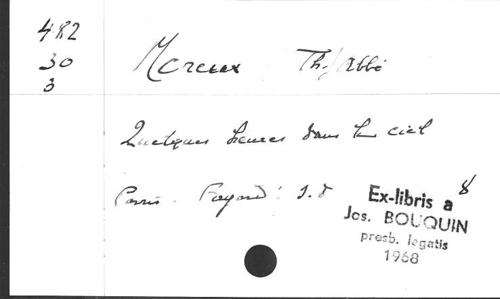 482
30
3
Moreux Th. / Abbé
Quelques heures dans le ciel
Paris - Fayard : s.d 8
Ex-libris a
Jos. BOUQUIN
presb. legatis
1968